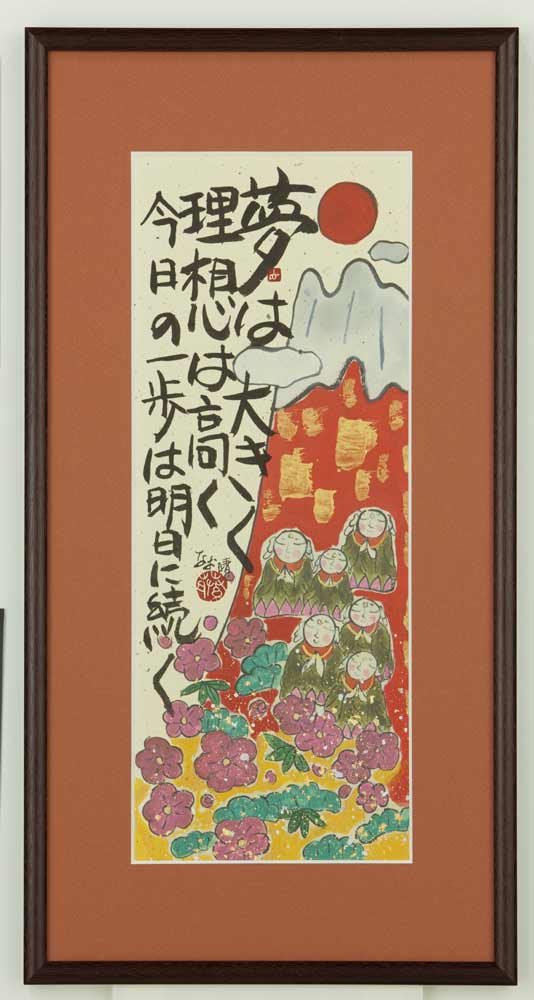 夢は大きく
理想は高く
今日の一歩は明日に続く